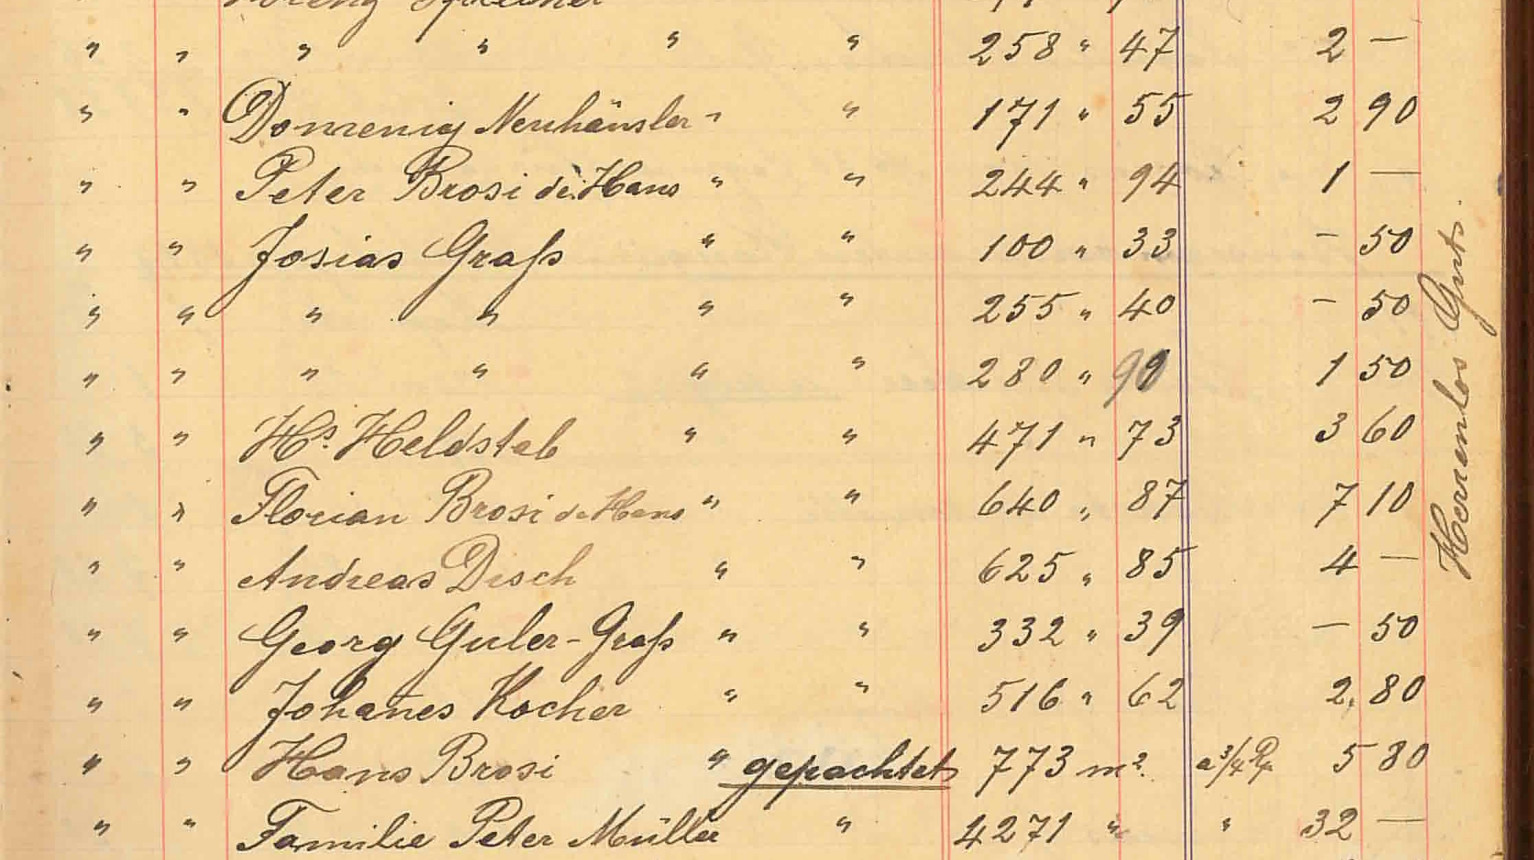 " " " " " " 258 " 47 2 —
" " Domenig Neuhäusler " " 171 " 55 2 90
" " Peter Brosi de Hans " " 244 " 94 1 —
" " Josias Graß " " 100 " 33 – 50
" " " " " " 255 " 40 – 50
" " " " " " 280 " 1 50
" " Hs. Heldstab " " 471 " 73 3 60
" " Florian Brosi de Hans " " 640 " 87 7 10
" " Andreas Disch " " 625 " 85 4 —
" " Georg Guler-Graß " " 332 " 39 – 50
" " Johañes Kocher " " 516 " 62 2. 80
" " Hans Brosi " gepachtet 773 m². a ¾ Rp 5 80
" " Familie Peter Müller " 4271 " " 32 —
Herrenlos Guts.